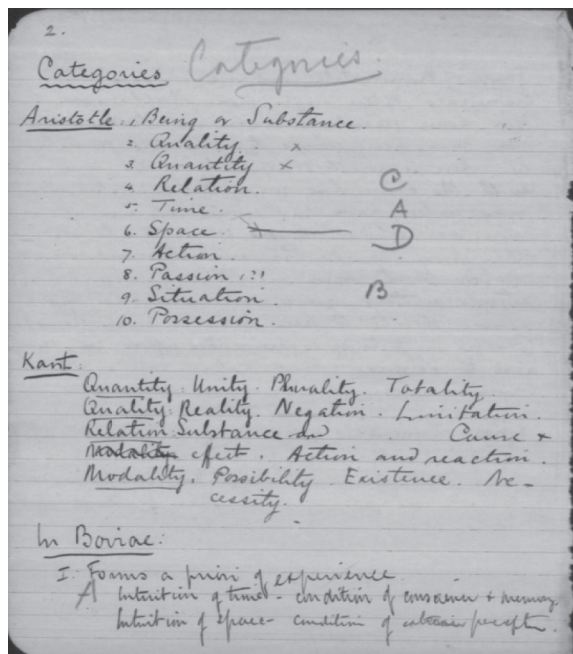 2.
Categories Categories.
Aristotle: 1. Being or Substance.
2. Quality. x
3. Quantity x
4. Relation. C
5. Time. A
6. Space. D
7. Action
8. Passion (?)
9. Situation. B
10. Possession.
Kant:
Quantity: Unity. Plurality. Totality.
Quality: Reality. Negation. Limitation.
Relation: Substance and Cause +
Modality effect. Action and reaction.
Modality. Possibility. Existence. Ne-
cessity.
In Boirac:
I. Forms a priori of experience.
A Intuition of time - condition of conscience + memory.
Intuition of space - condition of exterior perception.